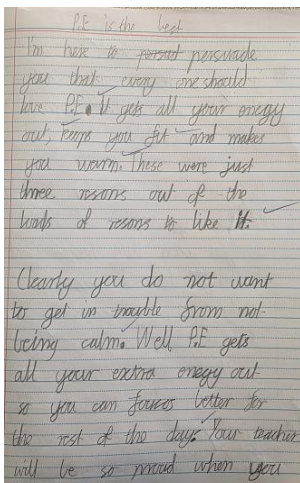 P.E is the best
I'm here to persuade
you that every one should
love P.E. It gets all your enegy
out, keeps you fit and makes
you warm. These were just
three resons out of the
loads of resons to like it.
Clearly you do not want
to get in trouble from not
being calm. Well P.E gets
all your extra enegy out
so you can foucos better for
the rest of the day. Your teacher
will be so proud when you